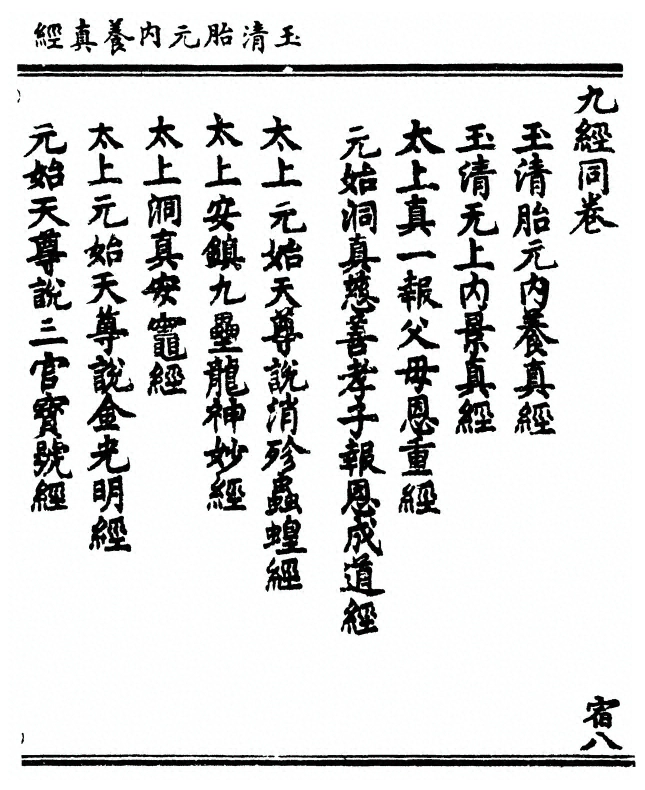 玉清胎元内養真經
九經同卷
玉清胎元内養真經
玉清无上内景真經
太上真一報父母恩重經
元始洞真慈善孝子報恩成道經
太上元始天尊說消殄蟲蝗經
太上安鎮九壘龍神妙經
太上洞真安竈經
太上元始天尊說金光明經
元始天尊說三官寶號經
宿八